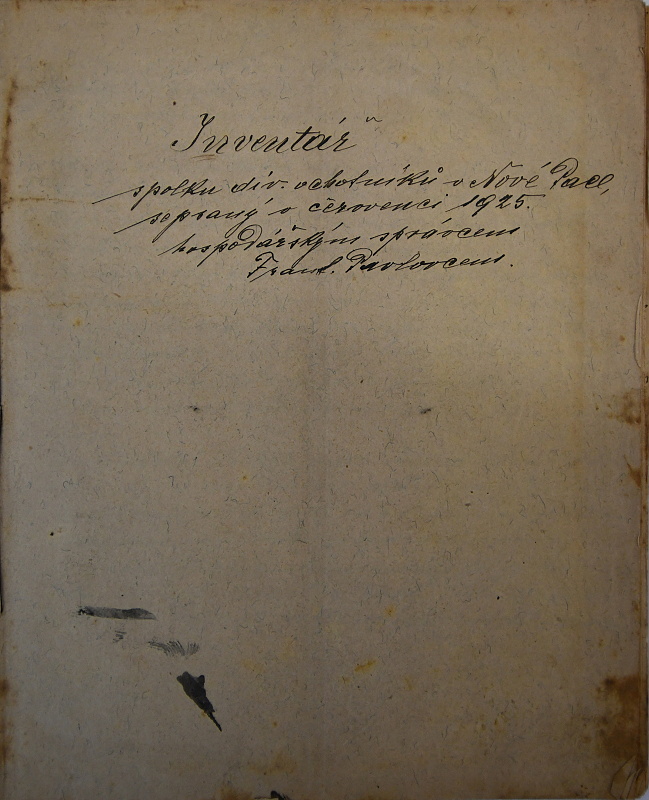 Inventář
spolku div. ochotníků v Nové Pace,
sepsaný v červenci 1925.
hospodářským správcem
Frant. Pavlovcem.